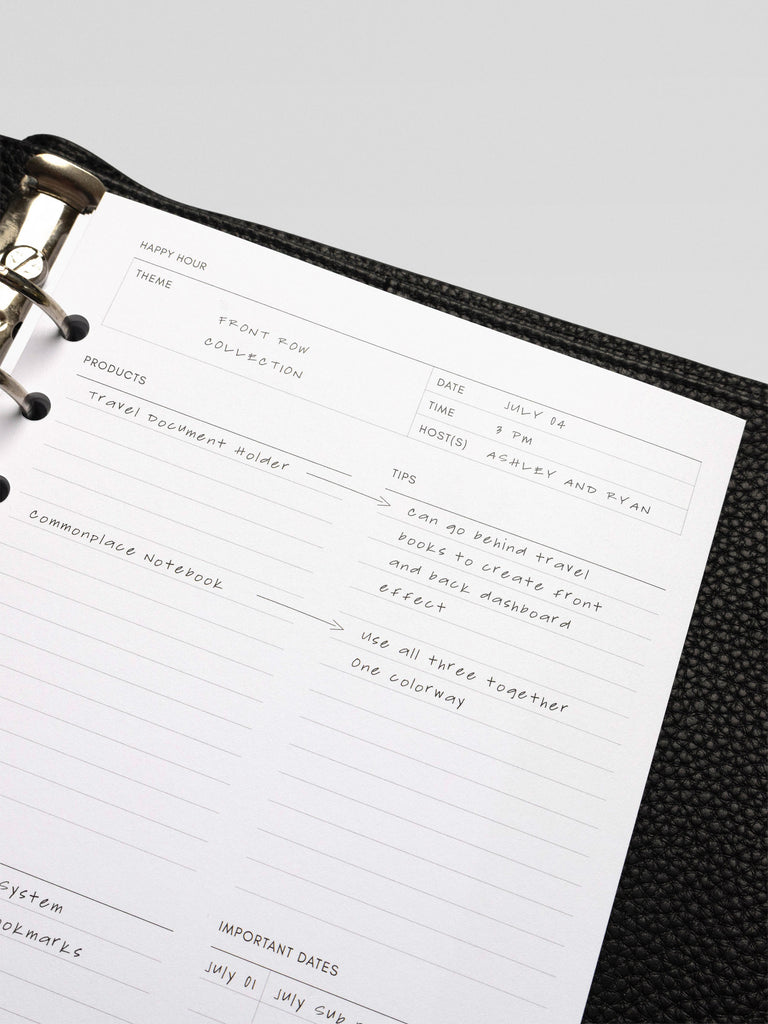 HAPPY HOUR
THEME
FRONT ROW
COLLECTION
DATE JULY 04
TIME 3 PM
HOST(S) ASHLEY AND RYAN
PRODUCTS
Travel Document Holder
Commonplace Notebook
TIPS
can go behind travel
books to create front
and back dashboard
effect
use all three together
One colorway
system
IMPORTANT DATES
July 01 July Sub